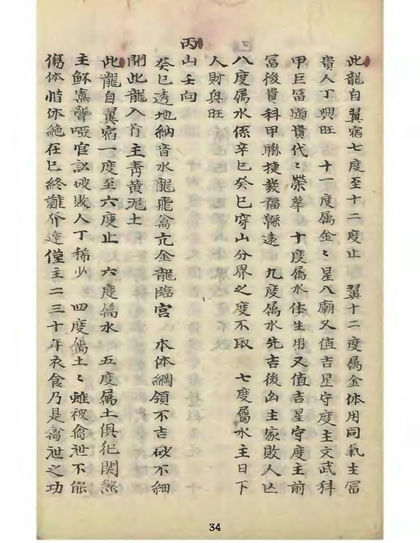 此龍自翼宿七度至十二度止　翼十二度属金体用同氣主冨
貴人丁興旺　十一度属金〻星八廟又值吉星守度主文武科
甲巨冨顕貴代〻榮華　十度属水体生用又值吉星守度主前
冨後貴科甲聯捷發福綿遠　九度属水先吉後凶主家敗人亡
八度属水係辛巳癸巳穿山分界之度不取　七度属水主日下
人財與旺
丙山壬向
癸巳透地納音水龍飛禽亢金龍臨宫　本体綱領不吉砂不細
開此龍入首主青黄泥土
此龍自翼宿一度至六度止　六度属水　五度属土俱犯関煞
主官訟破敗人丁稀少　四度属土〻雖被禽泄不能
傷体惜休絶在巳終難僅主二三十年衣食乃是禽泄之功
34